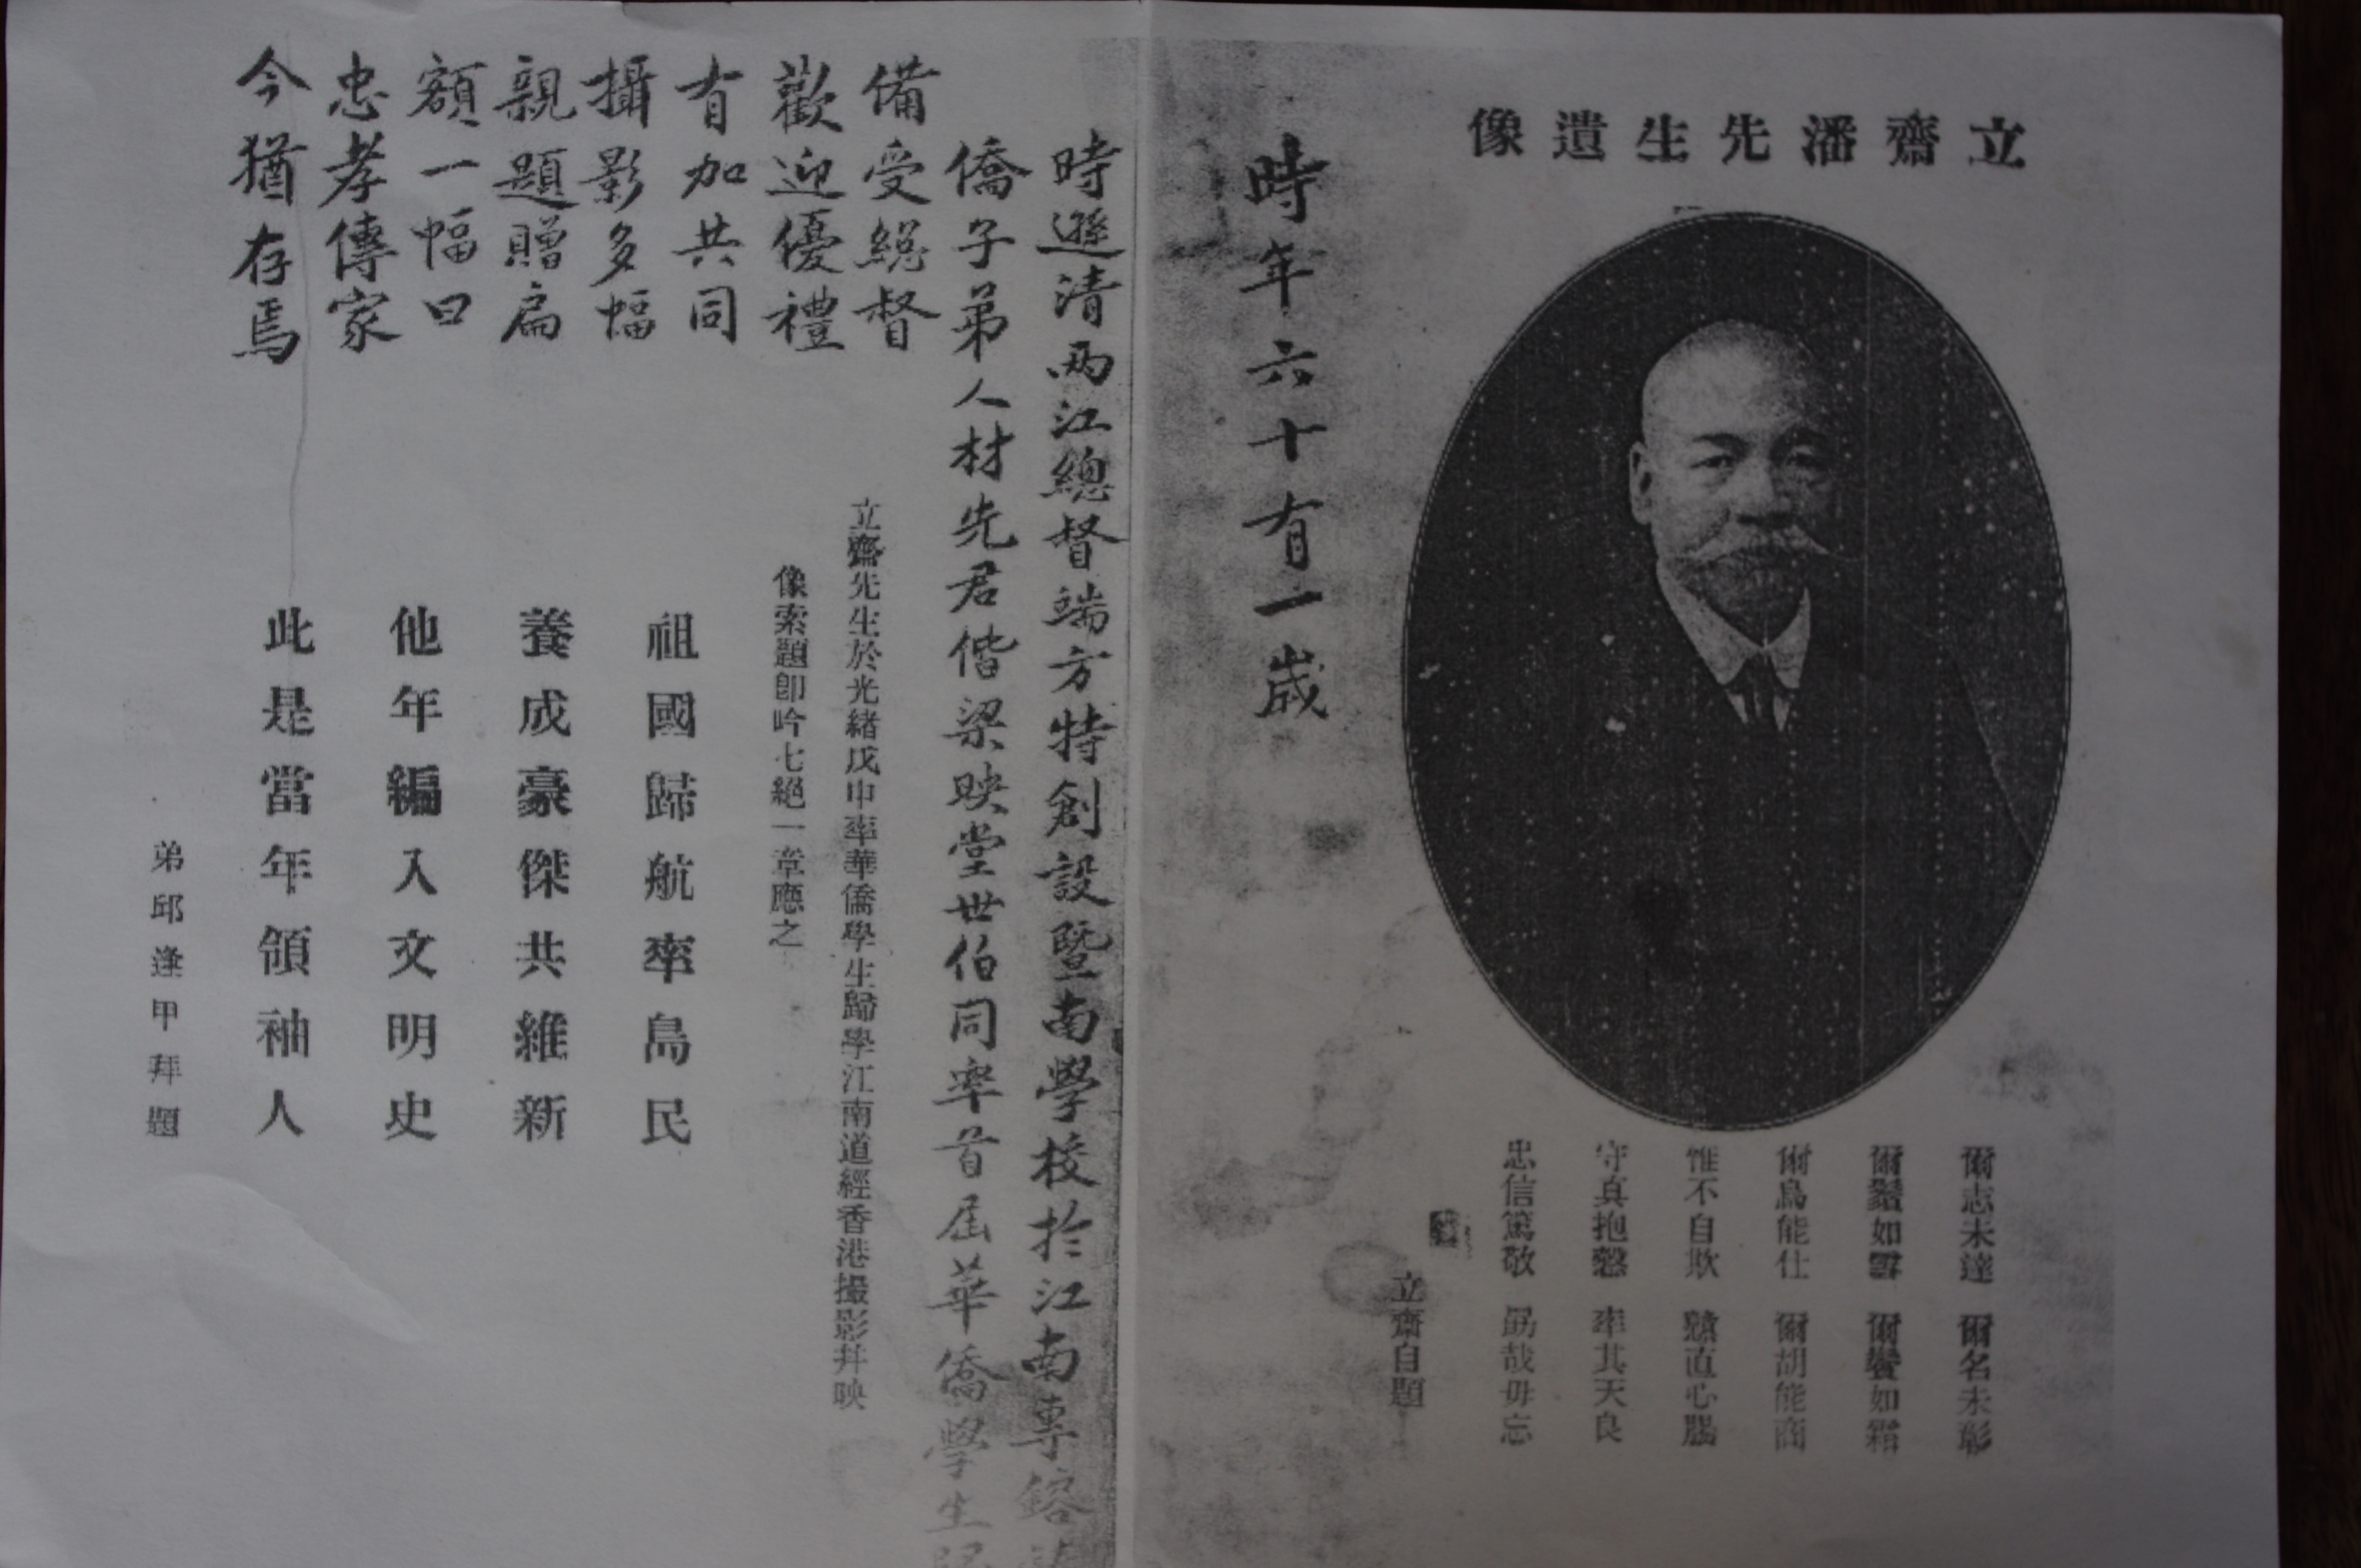 立齋潘先生遺像
爾志未達 爾名未彰
爾鬚如雪 爾鬢如霜
爾鳥能仕 爾胡能商
惟不自欺 戇直心腸
守真抱慤 率其天良
忠信篤敬 勗哉毋忘
立齋自題
時年六十有一歲
時遜清兩江總督端方特創設暨南學校於江南專鎔
僑子弟人材先君偕梁映堂世伯同率首屆華僑學生歸
備受緫督
歡迎優禮
有加共同
攝影多幅
親題贈扁
額一幅曰
忠孝傳家
今猶存焉
立齋先生於光緒戊申率華僑學生歸學江南道經香港撮影幷映
像索題卽吟七絕一章應之
祖國歸航率島民
養成豪傑共維新
他年編入文明史
此是當年領袖人
弟邱逢甲拜題